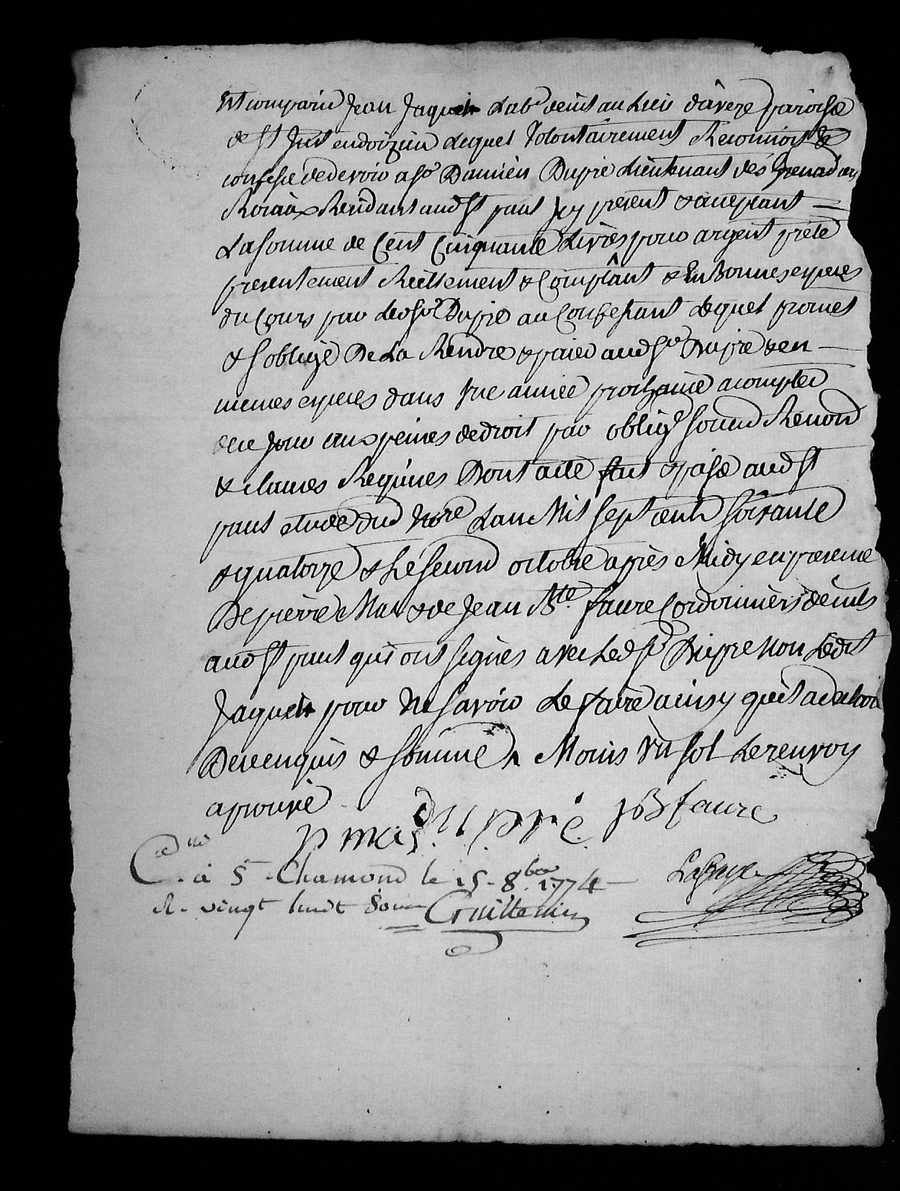 Est comparu Jean Jaquet Lab<sup>r</sup> demt au Lieu d'aveze paroisse
de St Just en doizieu Lequel Volontairement Reconnoit &
confesse de devoir a Sr Damien Dupré Lieutenant des Grenadiers
Roiaux Residant aud St paul Icy present & acceptant
La somme de Cent Cinquante Livres pour argent prété
presentement Réellement & Comptant & En Bonnes especes
du Cours par led Sr Dupré au Confessant Lequel promet
& soblige De La Rendre & paier aud Sr Dupré & en
memes especes dans Une année prochaine a compter
de ce jour aux peines de droit par oblig soum Renond
& clauses Requises Dont acte fait & passé aud St
paul etude dud Nore Lan Mil sept cent soixante
& quatorze & Le second octobre après Midy en presence
De pierre Mas & de Jean Bte faure Cordonniers demts
aud St paul qui ont signés avec Led Sr Dupre non Ledit
Jaquet pour Ne savoir Le faire ainsy quil a declaré
De ce enquis & sommé Moins Un sol Le renvoy
aprouvé
p mas Dupré JB faure
C à St Chamond le 15 8bre 1774
R vingt huit sous